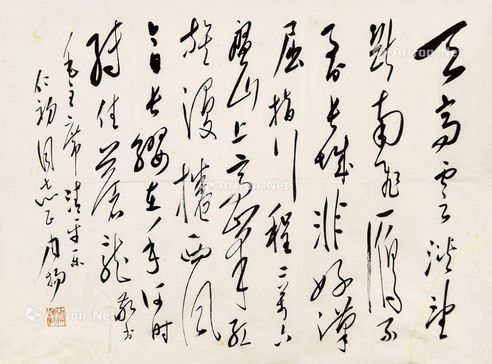 天高云淡望
断南飞雁不
到长城非好漢
屈指行程二萬六
盤山上高峰红
旗漫捲西风
今日长缨在手何时
缚住苍龙 敬书
毛主席清平乐
同志正
Artron.Net